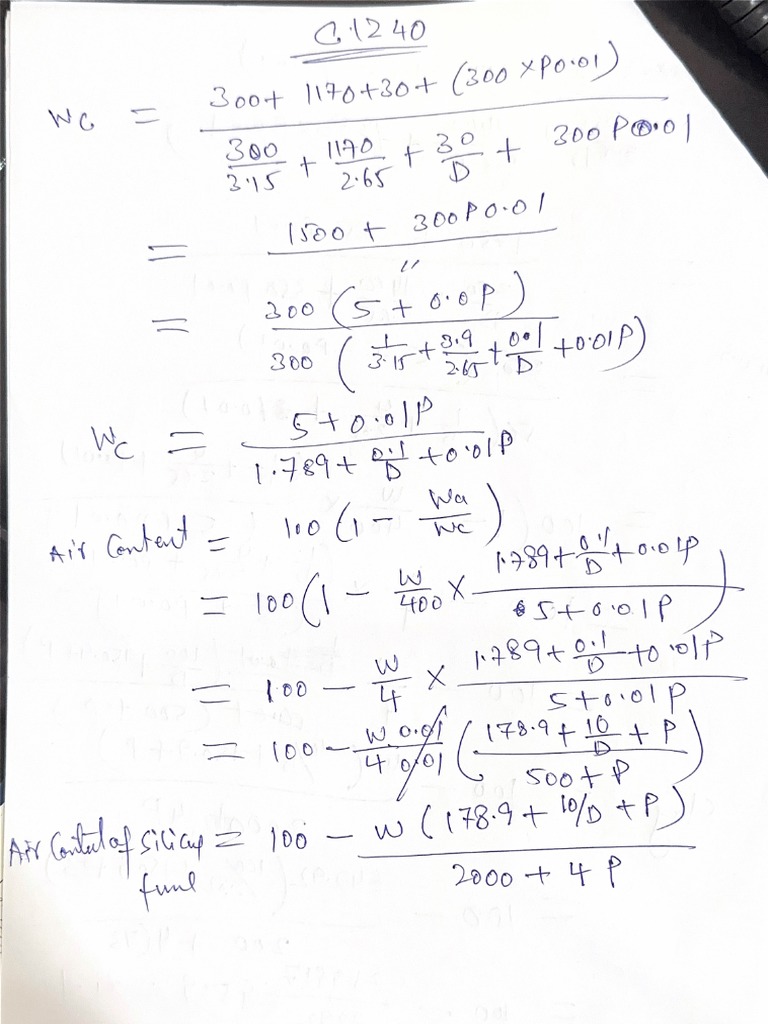 C.1240
Wc = (300 + 1170 + 30 + (300 × P0.01)) / (300/3.15 + 1170/2.65 + 30/D + 300 P0.01)
= (1500 + 300P0.01) / "
= 300 (5 + 0.0P) / 300 (1/3.15 + 3.9/2.65 + 0.1/D + 0.01P)
Wc = (5 + 0.01P) / (1.789 + 0.1/D + 0.01P)
Air Content = 100 (1 - Wa/Wc)
= 100 (1 - W/400 × (1.789 + 0.1/D + 0.01P) / (5 + 0.01P))
= 100 - W/4 × (1.789 + 0.1/D + 0.01P) / (5 + 0.01P)
= 100 - W 0.01 / 4 0.01 ((178.9 + 10/D + P) / (500 + P))
Air Content of = 100 - W (178.9 + 10/D + P) / (2000 + 4P)
fume